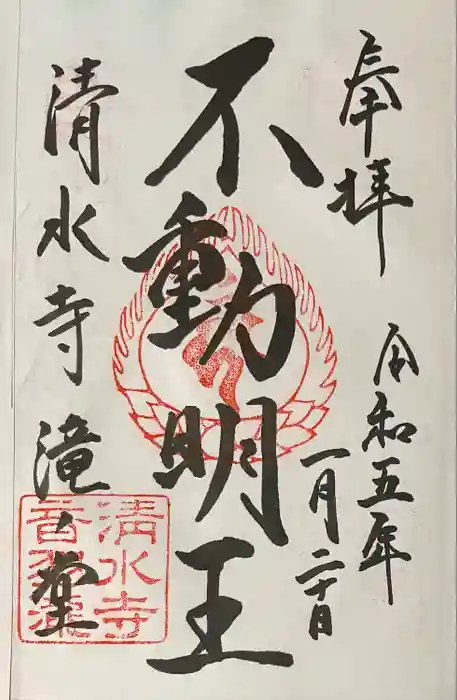 奉拝
令和五年
一月二十日
不動明王
清水寺 滝ノ堂
清水寺
音羽滝